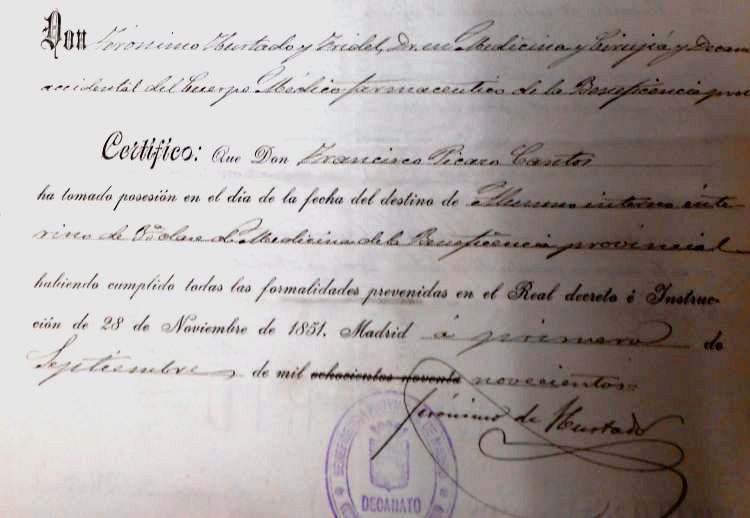 Don Jerónimo Hurtado y Fridel, Dr. en Medicina y Cirujía y Decano
accidental del Cuerpo Médico-farmaceutico de la Beneficencia prov
Certifico: Que Don Francisco Picazo Cantos
ha tomado posesión en el dia de la fecha del destino de Alumno interno inte-
rino de 3ª clase de Medicina de la Beneficencia provincial
habiendo cumplido todas las formalidades prevenidas en el Real decreto é Instruc-
ción de 28 de Noviembre de 1851. Madrid á primero de
Septiembre de mil ochocientos noventa novecientos=
Jerónimo de Hurtado
DECANATO